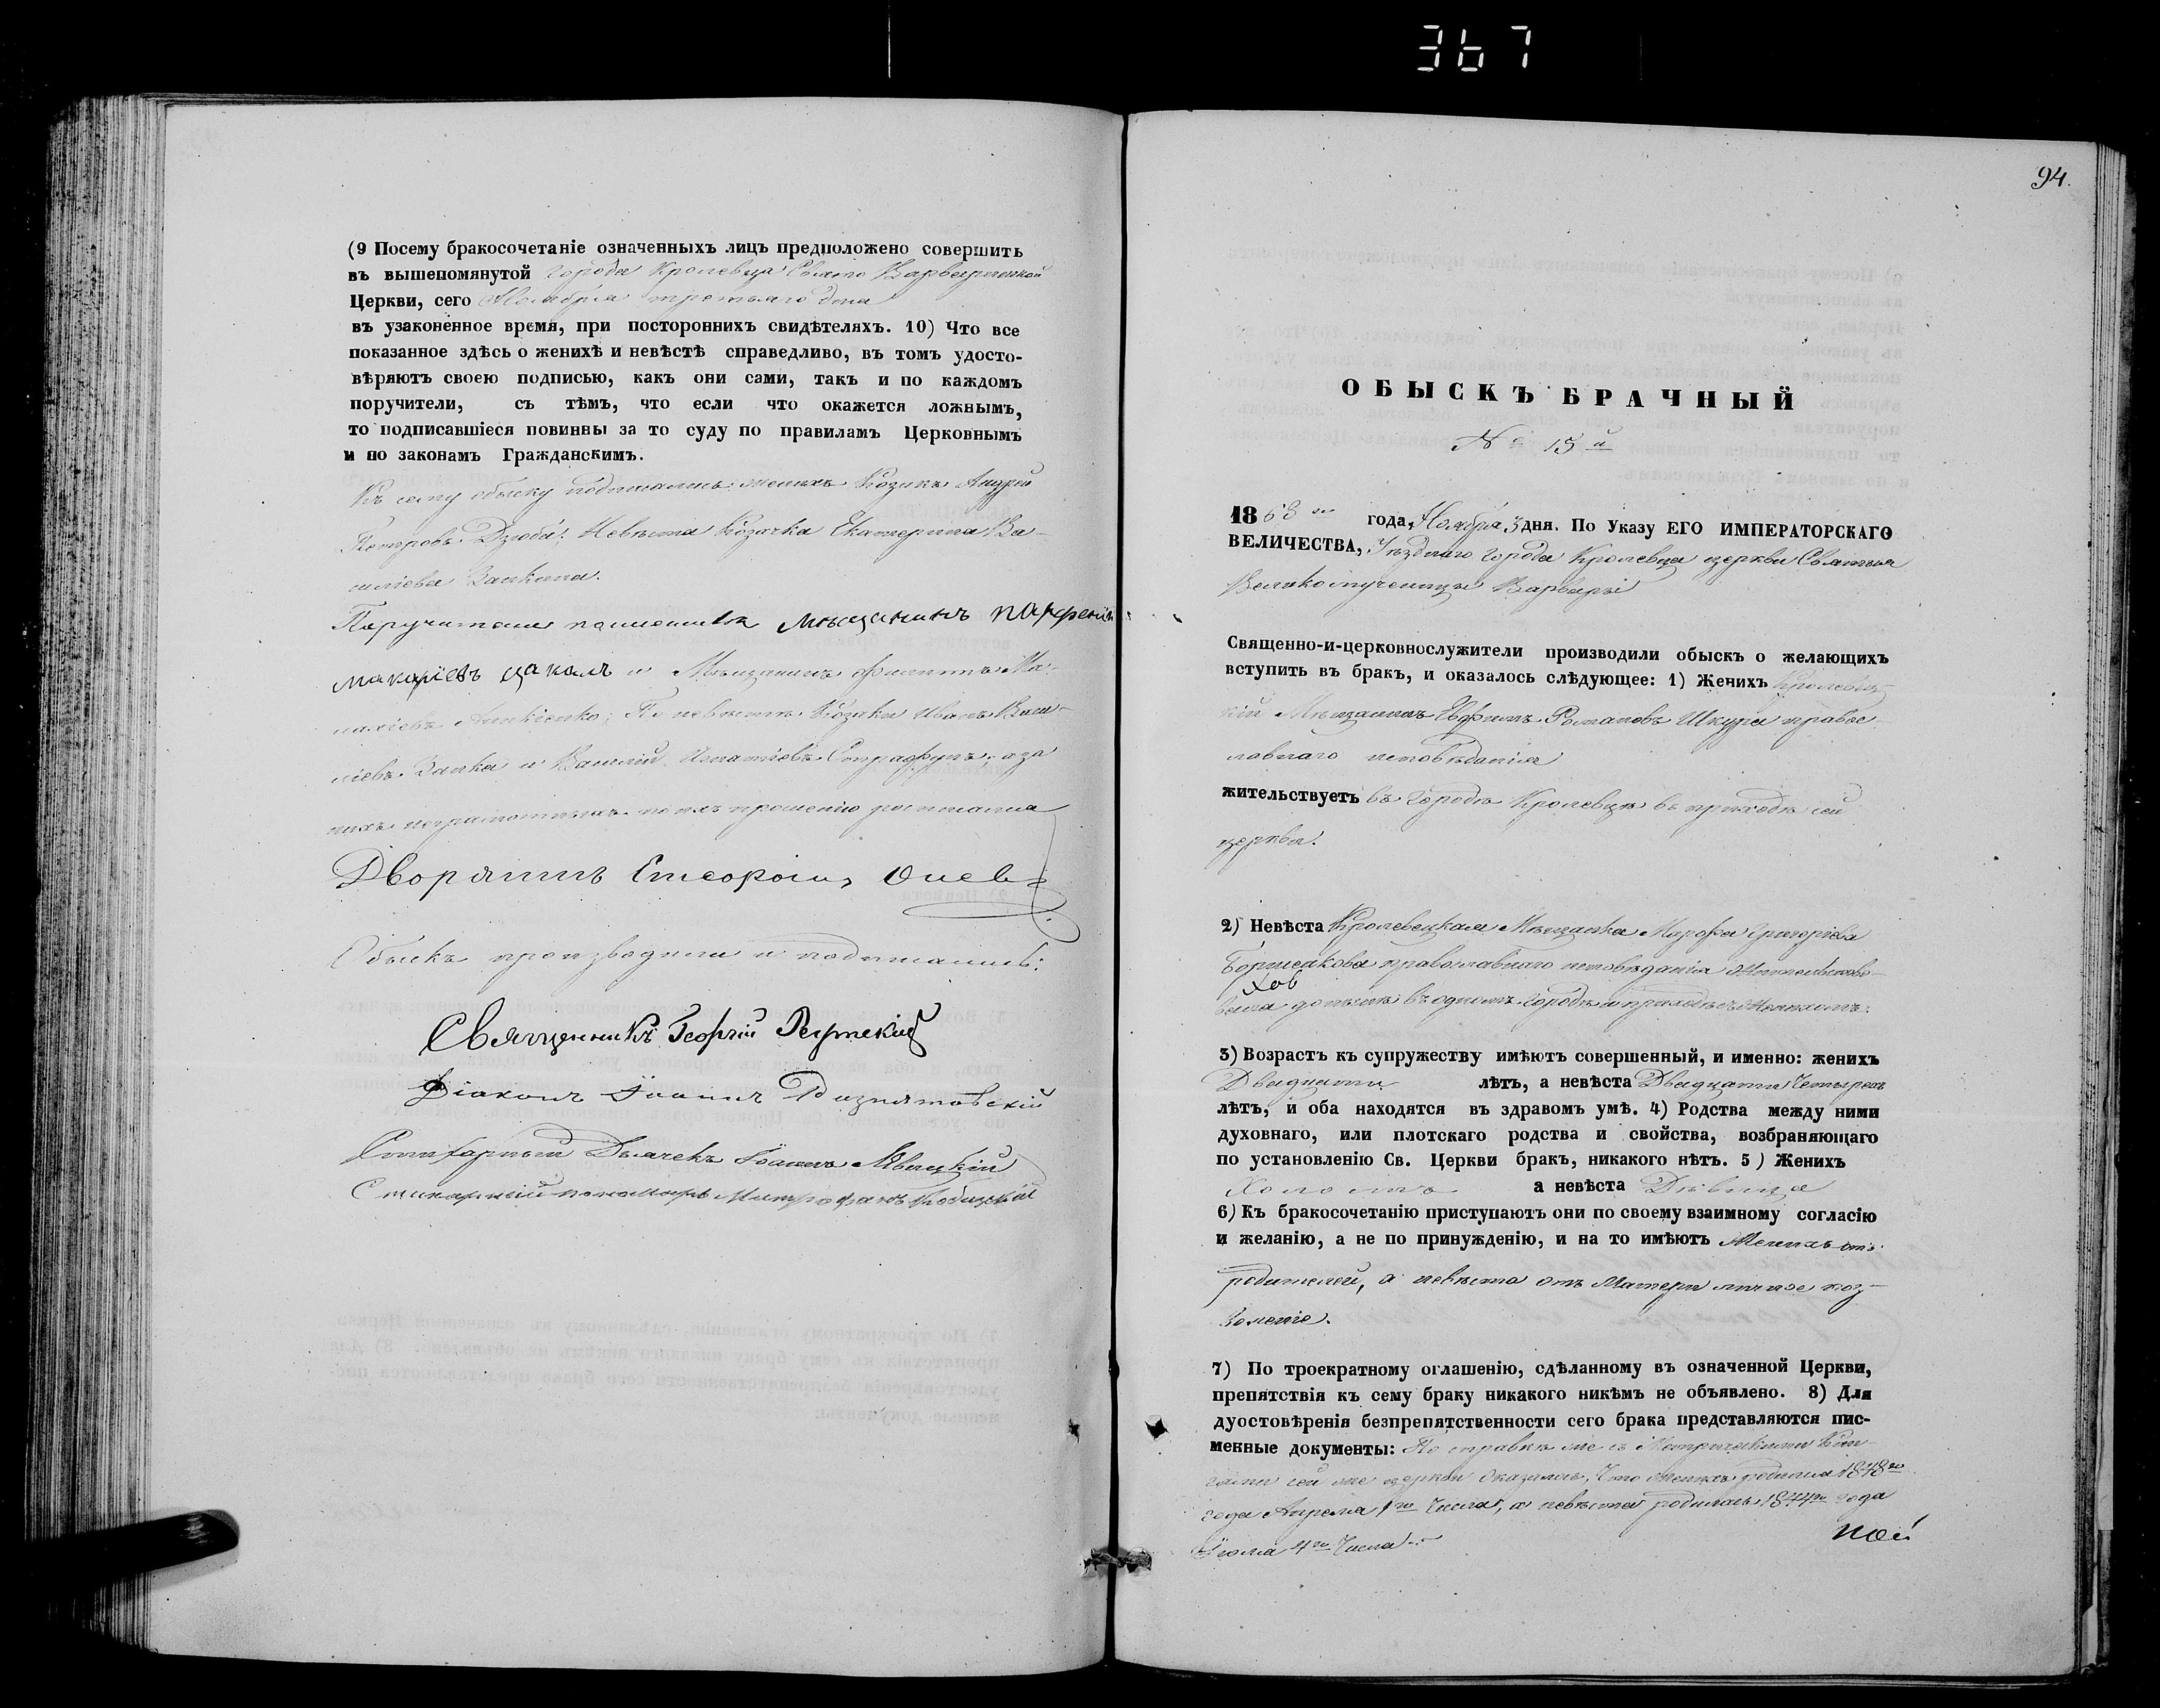 367
(9 Посему бракосочетаніе означенныхъ лицъ предположено совершить
въ вышепомянутой города Кролевца Свято Варваринской
Церкви, сего Ноября третьяго дня
въ узаконенное время, при постороннихъ свидѣтеляхъ. 10) Что все
показанное здѣсь о женихѣ и невѣстѣ справедливо, въ томъ удосто-
вѣряютъ своею подписью, какъ они сами, такъ и по каждомъ
поручители, съ тѣмъ, что если что окажется ложнымъ,
то подписавшіеся повинны за то суду по правиламъ Церковнымъ
и по законамъ Гражданскимъ.
Къ сему обыску подписались: женихъ Козакъ Андрей
Петровъ Дзюба. Невѣста Козачка Екатерина Ва-
силіева Заикина.
Поручители по женихѣ Мѣщанинъ Парфеній
Макаріевъ Цакал и Мѣщанинъ Филиппъ Ма-
; По невѣстѣ Козаки Иванъ Васи-
ліевъ Заика и Василій Игнатіевъ, а за
нихъ неграмотныхъ по ихъ прошенію росписался
Дворянинъ
Обыскъ производили и подписались:
Священникъ Георгій
Діаконъ Іоаннъ
Стихарный Дьячекъ Іоаннъ Явицкій
Стихарный пономарь Митрофанъ
94.
ОБЫСКЪ БРАЧНЫЙ
№ 15й
1868 го года, Ноября 3 дня. По Указу ЕГО ИМПЕРАТОРСКАГО
ВЕЛИЧЕСТВА, Уѣзднаго города Кролевца церкви Святыя
Великомученицы Варвары
Священно-и-церковнослужители производили обыскъ о желающихъ
вступить въ бракъ, и оказалось слѣдующее: 1) Женихъ Кролевец-
кій Мѣщанинъ Евфимъ Романовъ Шкура правос-
лавнаго исповѣданія
жительствуетъ въ городѣ Кролевцѣ въ приходѣ сей
церкви.
2) Невѣста Кролевецкая Мѣщанка Марфа Григоріева
православнаго исповѣданія жительство-
хов
вала донынѣ въ одномъ городѣ и приходѣ съ Женихомъ.
3) Возрастъ къ супружеству имѣютъ совершенный, и именно: женихъ
Двадцати лѣтъ, а невѣста Двадцати Четырехъ
лѣтъ, и оба находятся въ здравомъ умѣ. 4) Родства между ними
духовнаго, или плотскаго родства и свойства, возбраняющаго
по установленію Св. Церкви бракъ, никакого нѣтъ. 5) Женихъ
Холостъ а невѣста Дѣвица
6) Къ бракосочетанію приступаютъ они по своему взаимному согласію
и желанію, а не по принужденію, и на то имѣютъ Женихъ отъ
родителей, а невѣста отъ Матери личное поз-
воленіе.
7) По троекратному оглашенію, сдѣланному въ означенной Церкви,
препятствія къ сему браку никакого никѣмъ не объявлено. 8) Для
дуостовѣренія безпрепятственности сего брака представляются пис-
менные документы: По справкѣ же съ Метрическими Кни-
гами сей же церкви Оказалось, что женихъ родился 1848го
года Апреля 1го Числа, а невѣста родилась 1844го года
Іюля 4го Числа